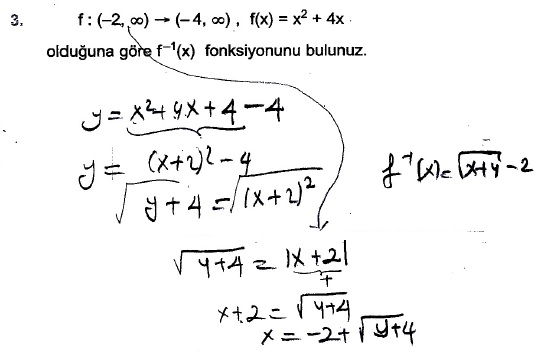 3. f : (–2, ∞) → (–4, ∞) , f(x) = x² + 4x
olduğuna göre f⁻¹(x) fonksiyonunu bulunuz.
y = x² + 4x + 4 – 4
y = (x+2)² – 4
√y + 4 = √(x+2)²
f⁻¹(x) = √x+4 – 2
√y+4 = |x + 2|
+
x + 2 = √y+4
x = –2 + √y+4